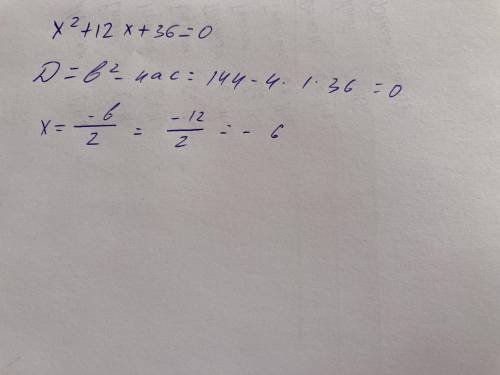 x²+12x+36=0
D=b²-4ac=144-4·1·36=0
x=\frac{-b}{2}=\frac{-12}{2}=-6